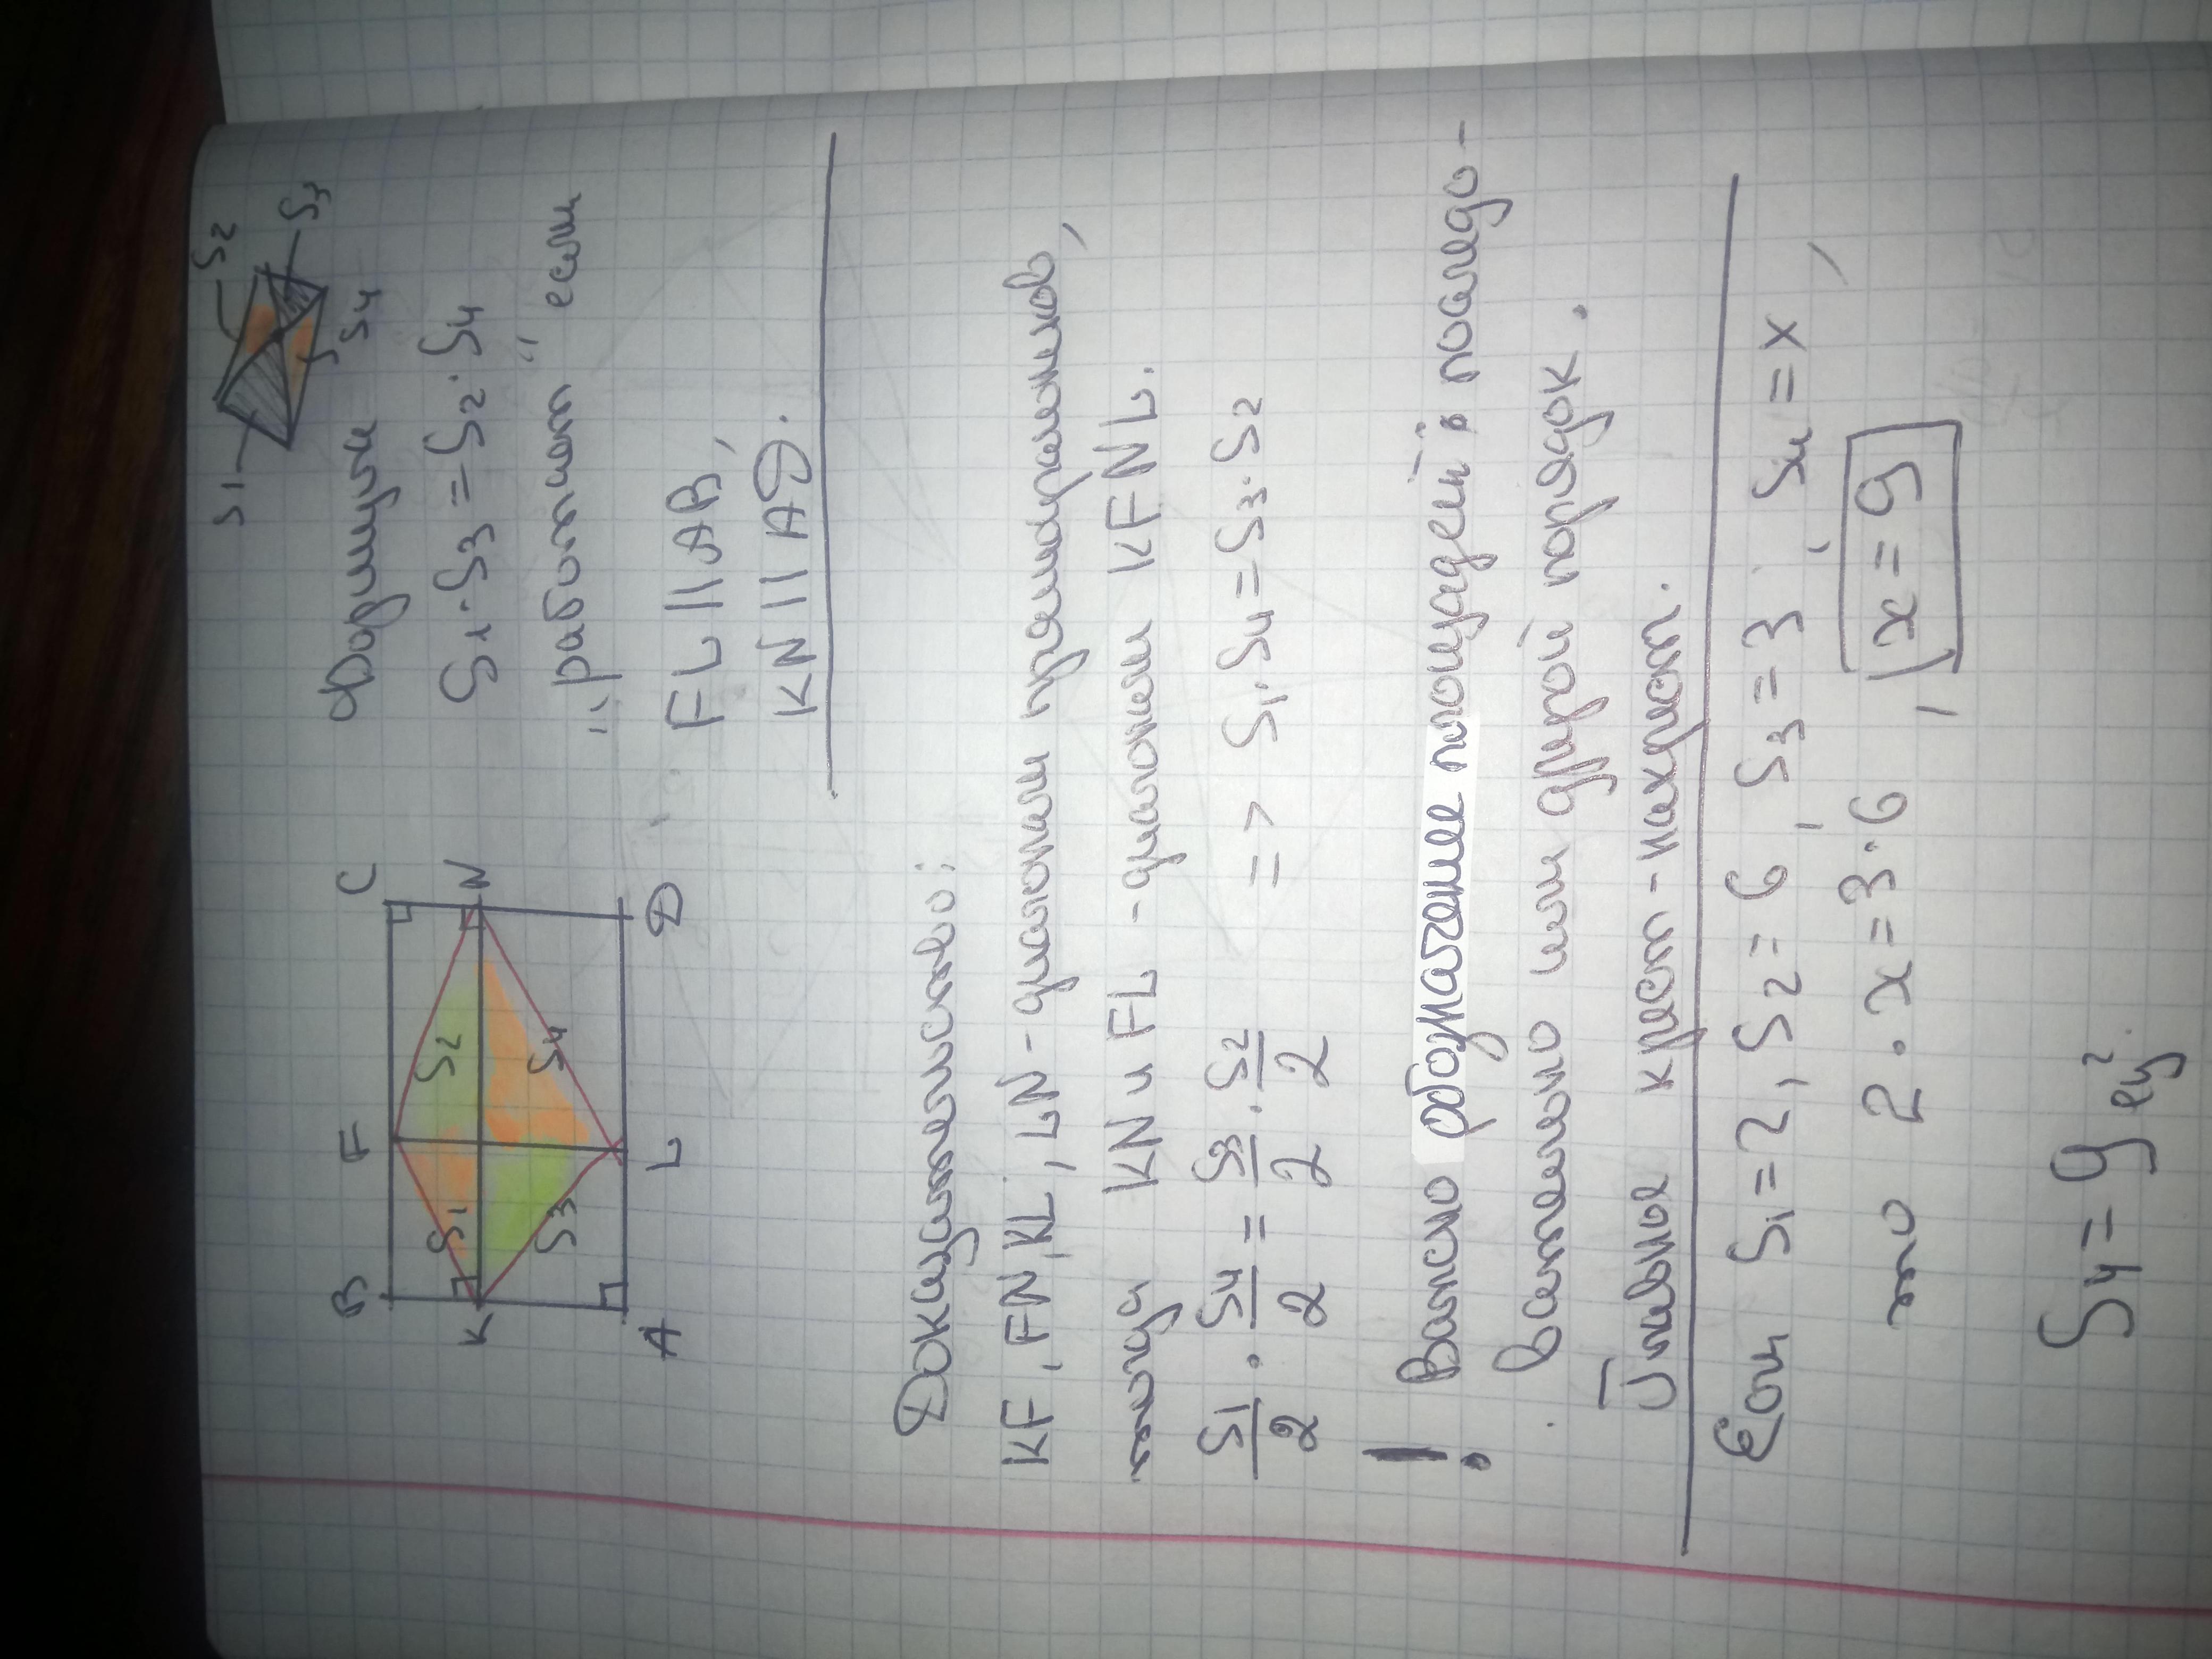 B F C
S1 S2
K N
S3 S4
A L D
S1 S2
S4 S3
Формула
S1·S3=S2·S4
"работает" если
FL || AB,
KN || AD.
Доказательство:
KF, FN, KL, LN - диагонали прямоугольников,
тогда KN и FL - диагонали KFNL.
S1/2 · S4/2 = S3/2 · S2/2 => S1·S4=S3·S2
! Важно обозначение площадей: последо-
вательно или другой порядок.
Главное крест-накрест.
Если S1=2, S2=6, S3=3, S4=x,
то 2·x=3·6, x=9
S4=9 ед².